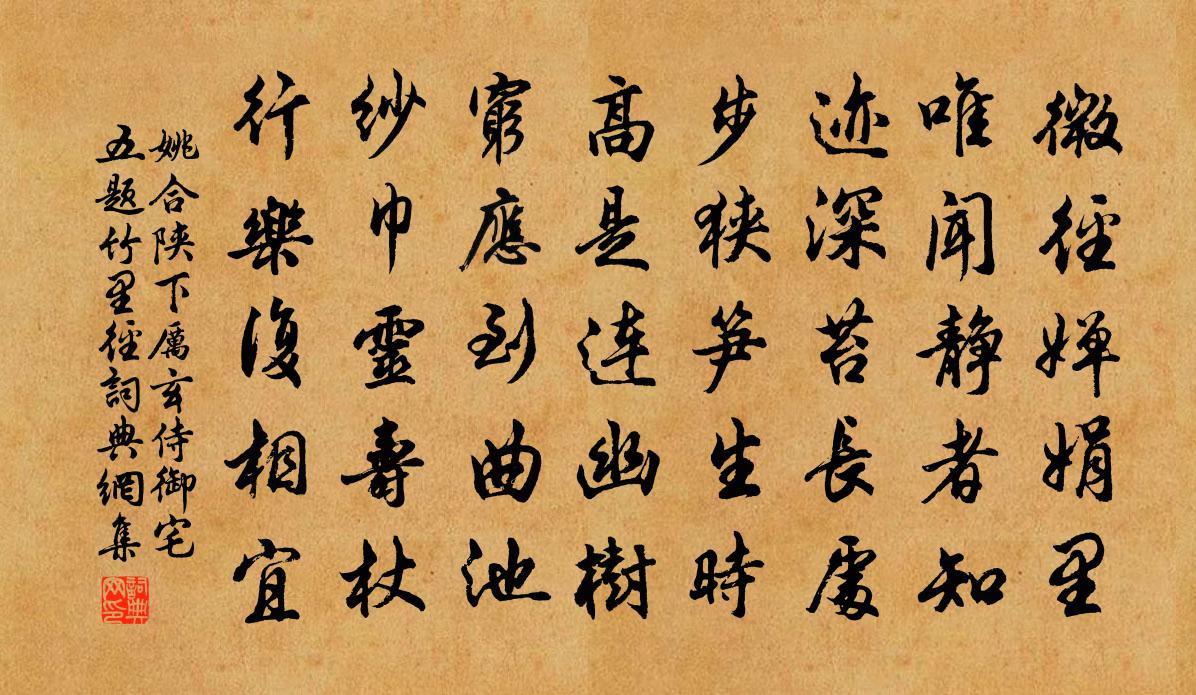 微徑嬋娟里
唯聞静者知
迹深苔長處
步狹笋生時
高是連幽樹
窮應到曲池
紗巾靈壽杖
行樂復相宜
姚合陝下厲玄侍御宅
五題竹里徑詞典網集
詞典网印